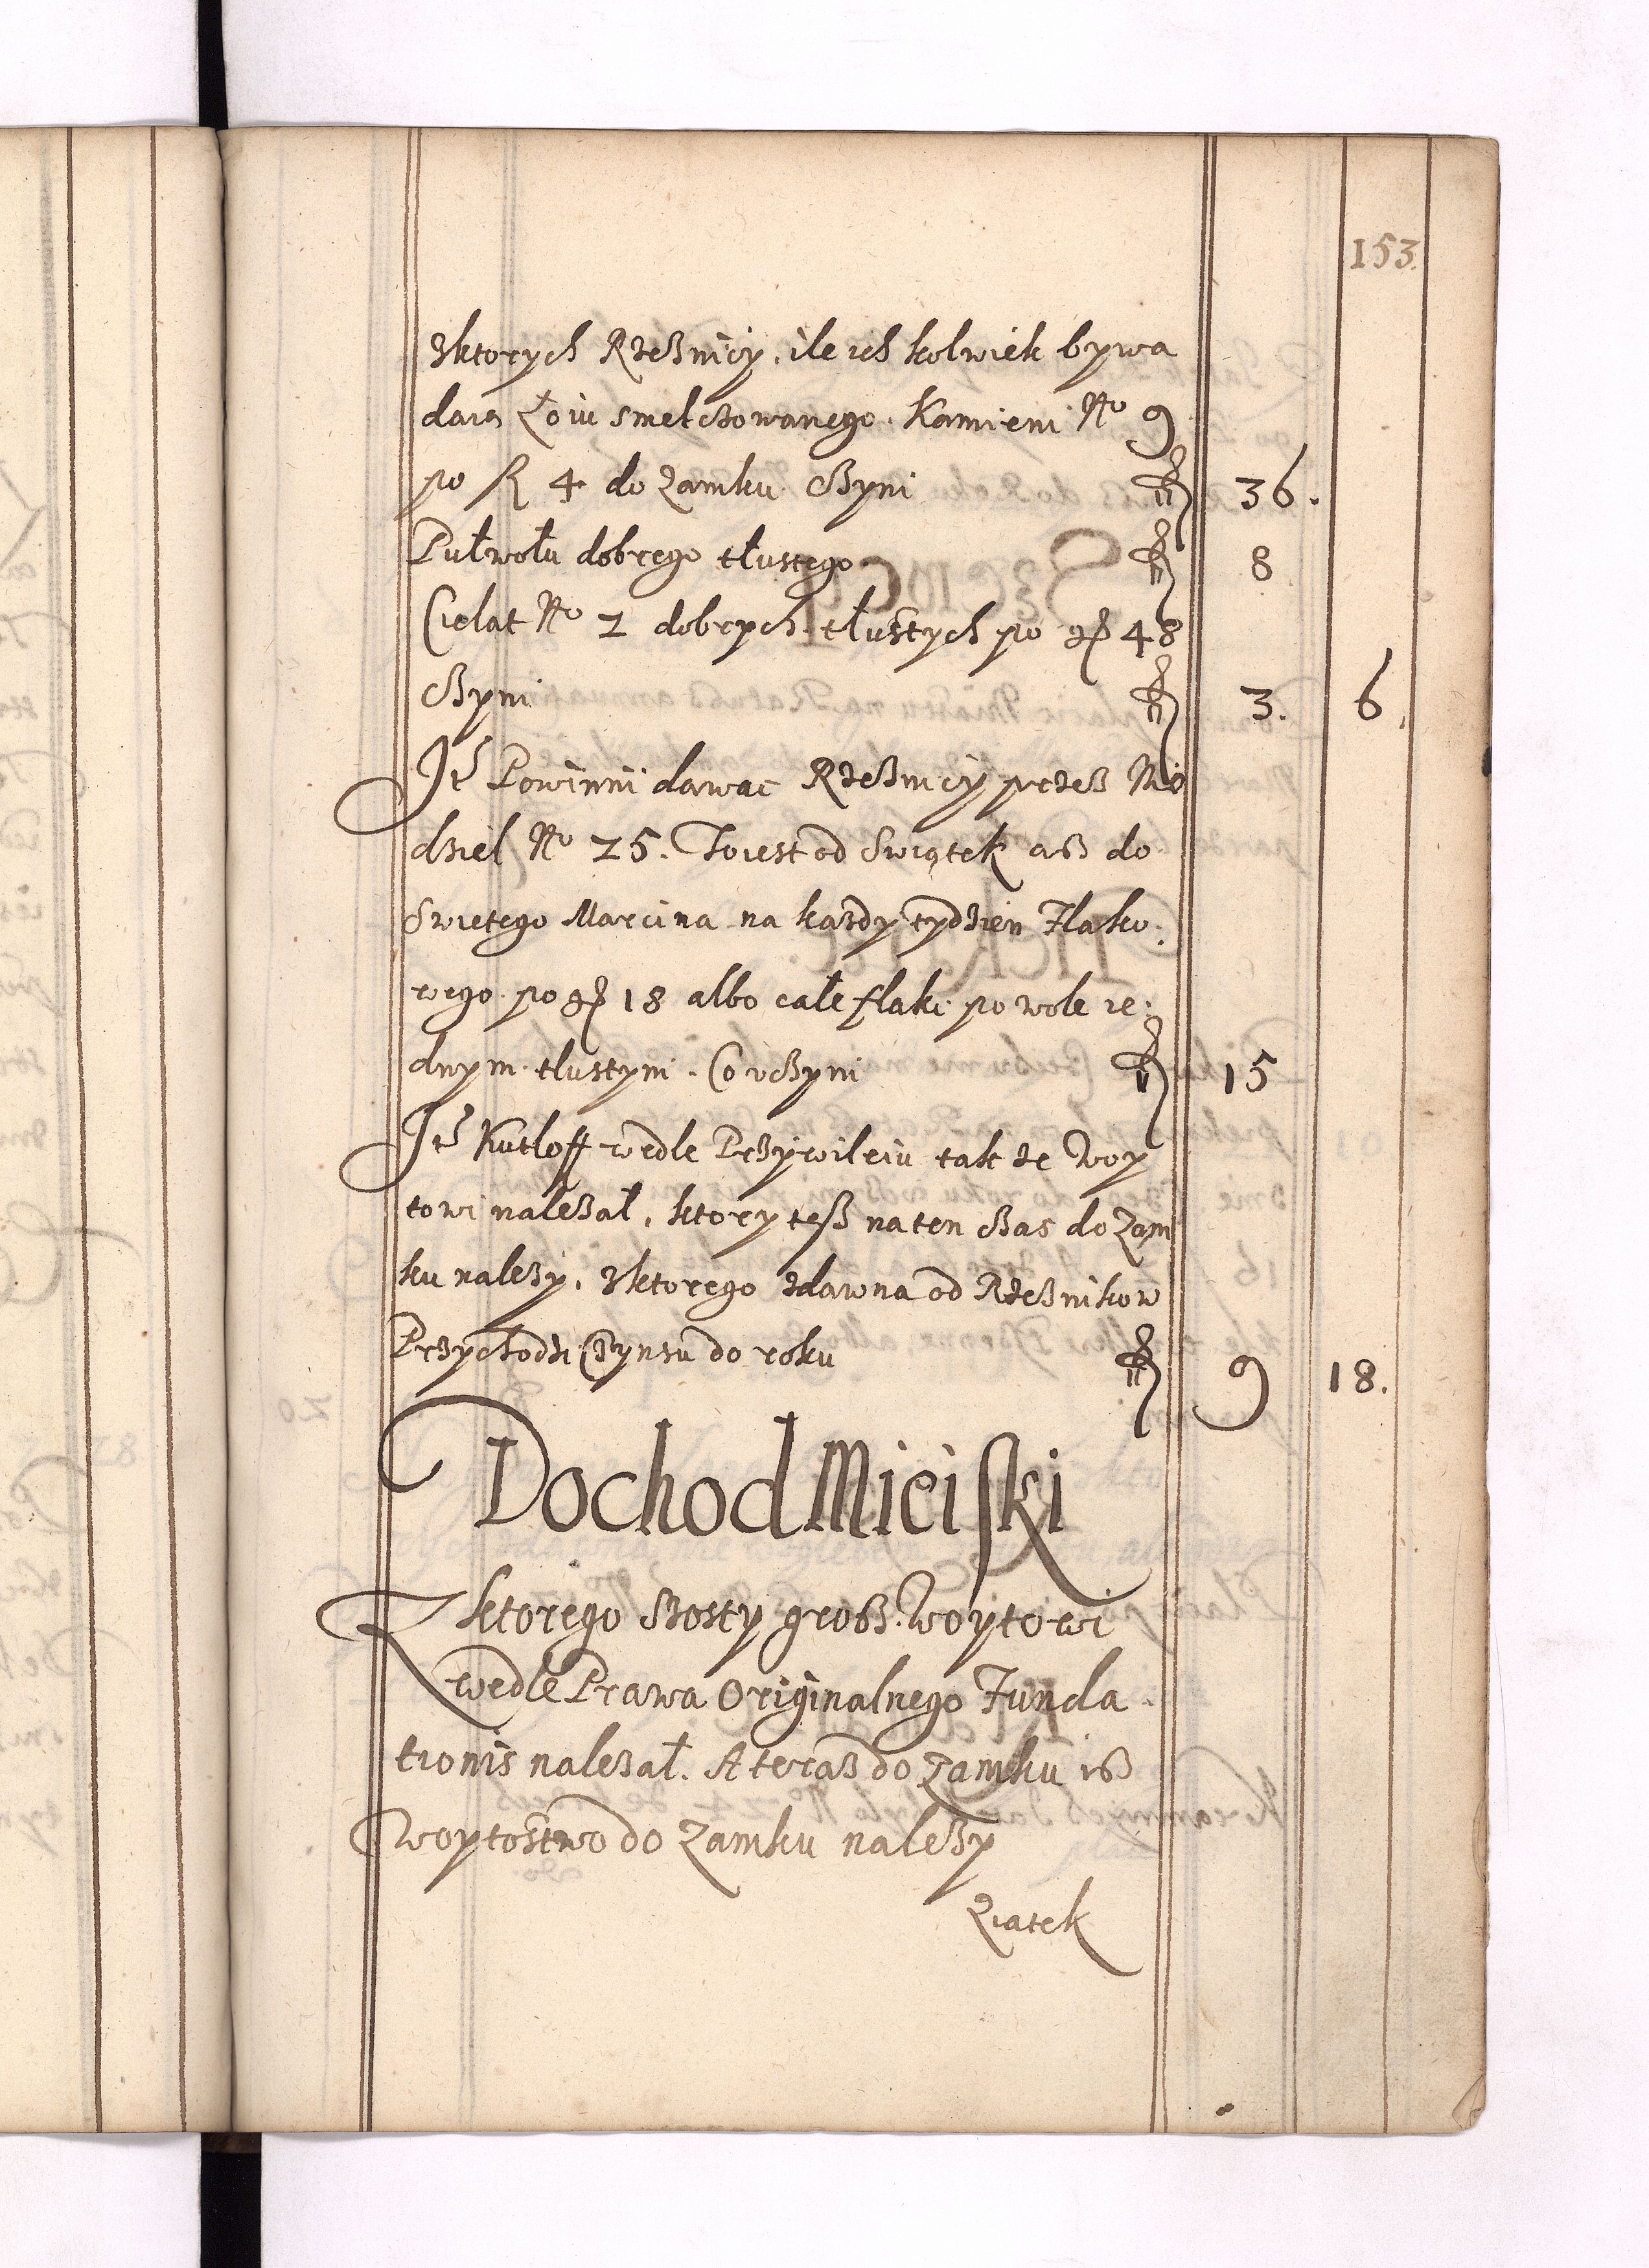 153.
zktorych Rzeßnicy, ile ich kolwiek bywa
daią Łoiu smelczowanego. Kamieni No 9
po fl 4 do Zamku cżyni fl 36.
Pułwołu dobrego tłustego fl 8
Cieląt No 2 dobrych tłustych po gl 48
cżyni fl 3. 6.
It Powinni dawac Rzeßnicy przeß Nie
dziel No 25. To iest od Swiątek aß do
Swietego Marcina na każdy tydzien Flako:
wego po gl 18 albo całe flaki po wole ie:
dnym tlustym. Co vcżyni fl 15
It Kutloff wedle Przywileiu takze Woy
towi należał, ktory teß na ten cżas do Zam
ku należy, zktorego zdawna od Rzeßnikow
Przychodzi Czynsu do roku fl 9 18.
Dochod Mieiski
Z ktorego szosty grosz. Woytowi
wedle Prawa Originalnego Funda
tionis należał. A teraß do Zamku iß
Woytostwo do Zamku należy
Ziatek